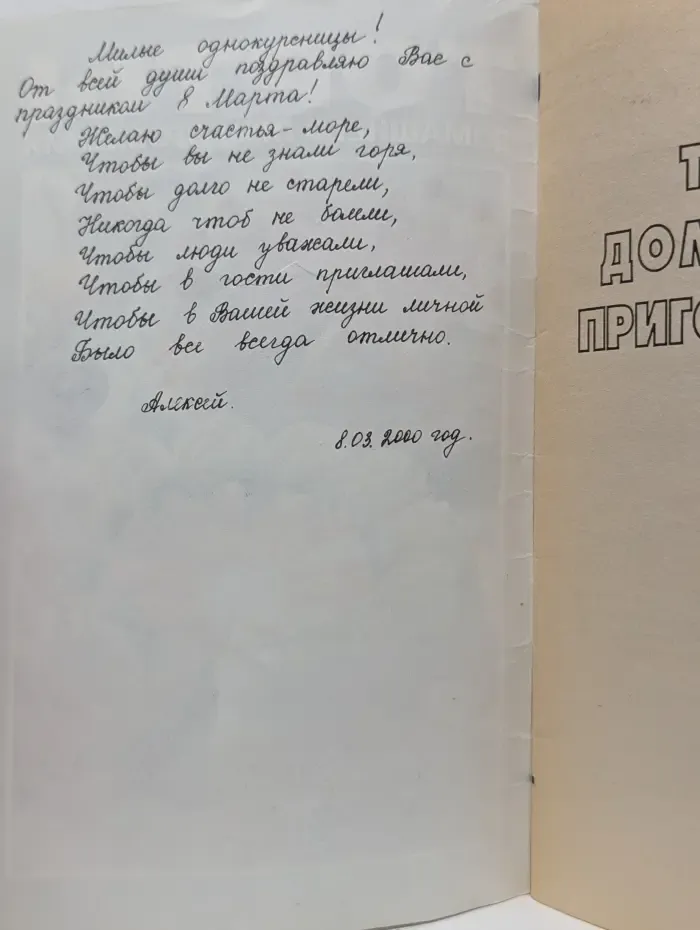 Милые однокурсницы!
От всей души поздравляю Вас с
праздником 8 Марта!
Желаю счастья - море,
Чтобы вы не знали горя,
Чтобы долго не старели,
Никогда чтоб не болели,
Чтобы люди уважали,
Чтобы в гости приглашали,
Чтобы в Вашей жизни личной
Было все всегда отлично.
Алексей.
8.03.2000 год.
Т
ДОМ
ПРИГО